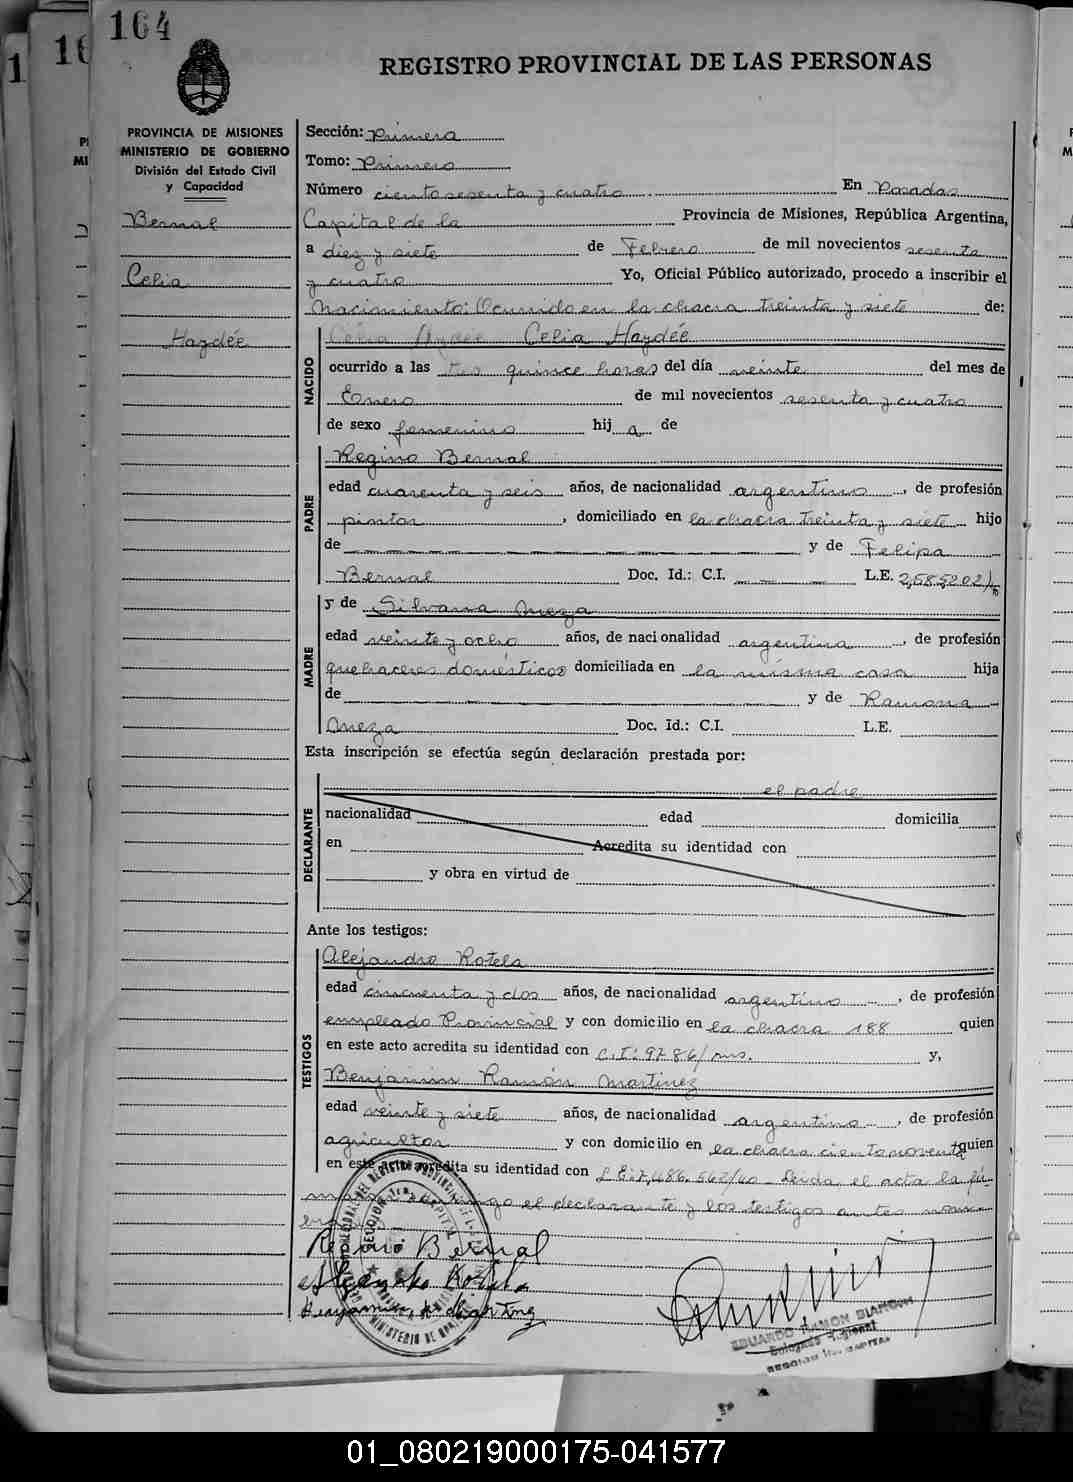 164
REGISTRO PROVINCIAL DE LAS PERSONAS
PROVINCIA DE MISIONES
MINISTERIO DE GOBIERNO
División del Estado Civil
y Capacidad
Bernal
Celia
Haydée
Sección: Primera
Tomo: Primero
Número ciento sesenta y cuatro En Posadas
Capital de la Provincia de Misiones, República Argentina,
a diez y siete de Febrero de mil novecientos sesenta
y cuatro Yo, Oficial Público autorizado, procedo a inscribir el
Nacimiento: Ocurrido en la chacra treinta y siete de:
NACIDO
Celia Haydée
ocurrido a las quince horas del día veinte del mes de
Enero de mil novecientos sesenta y cuatro
de sexo femenino hij a de
PADRE
Regino Bernal
edad cuarenta y seis años, de nacionalidad argentino, de profesión
pintor, domiciliado en la chacra treinta y siete hijo
de y de Felipa
Bernal Doc. Id.: C.I. L.E. 2,585,202/
MADRE
y de Silvana Meza
edad veinte y ocho años, de nacionalidad argentina, de profesión
quehaceres domésticos domiciliada en la misma casa hija
de y de Ramona
Meza Doc. Id.: C.I. L.E.
Esta inscripción se efectúa según declaración prestada por:
DECLARANTE
el padre
nacionalidad edad domicilia
en Acredita su identidad con
y obra en virtud de
Ante los testigos:
TESTIGOS
Alejandro Rotela
edad cincuenta y dos años, de nacionalidad argentino, de profesión
empleado Provincial y con domicilio en la chacra 188 quien
en este acto acredita su identidad con C.I: 9786/mns. y,
Benjamin Ramón Martinez
edad veinte y siete años, de nacionalidad argentino, de profesión
agricultor y con domicilio en la chacra ciento noventa quien
en este acto acredita su identidad con L.E: 7,486,562/40 Leida el acta la fir-
man conmigo el declarante y los testigos antes
Regino Bernal
Alejandro Rotela
Benjamin R. Martinez
EDUARDO RAMON BIANCHI
Delegado Regional
01_080219000175-041577